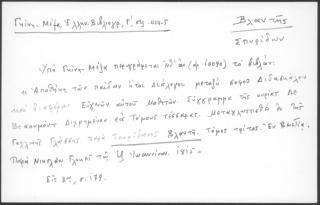 Γκίνη - Μέξα, Ἑλλην. Βιβλιογρ., Γ', σελ.
Βλαντῆς
Σπυρίδων
Ὑπὸ Γκίνη - Μέξα περιγράφεται (ἀρ. 10090) τὸ βιβλίον:
« Ἀποθήκη τῶν παίδων ἤτοι Διάλογοι μεταξὺ σοφοῦ Διδασκάλου
καὶ διαφόρων Εὐγενῶν αὐτοῦ Μαθητῶν. Σύγγραμμα τῆς κυρίας Δε
Βεαουμὸντ Διῃρημένον εἰς Τόμους τέσσαρας. Μεταγλωττισθὲ ἐκ τῆς
Γαλλικῆς Γλώσσης παρὰ Σπυρίδωνος Βλαντῆ. Τόμος τρίτος. Ἐν Βενετίᾳ.
Παρὰ Νικολάῳ Γλυκεῖ τῷ ἐξ Ἰωαννίνων. 1815 »
Εἰς 8ον, σ. 179.